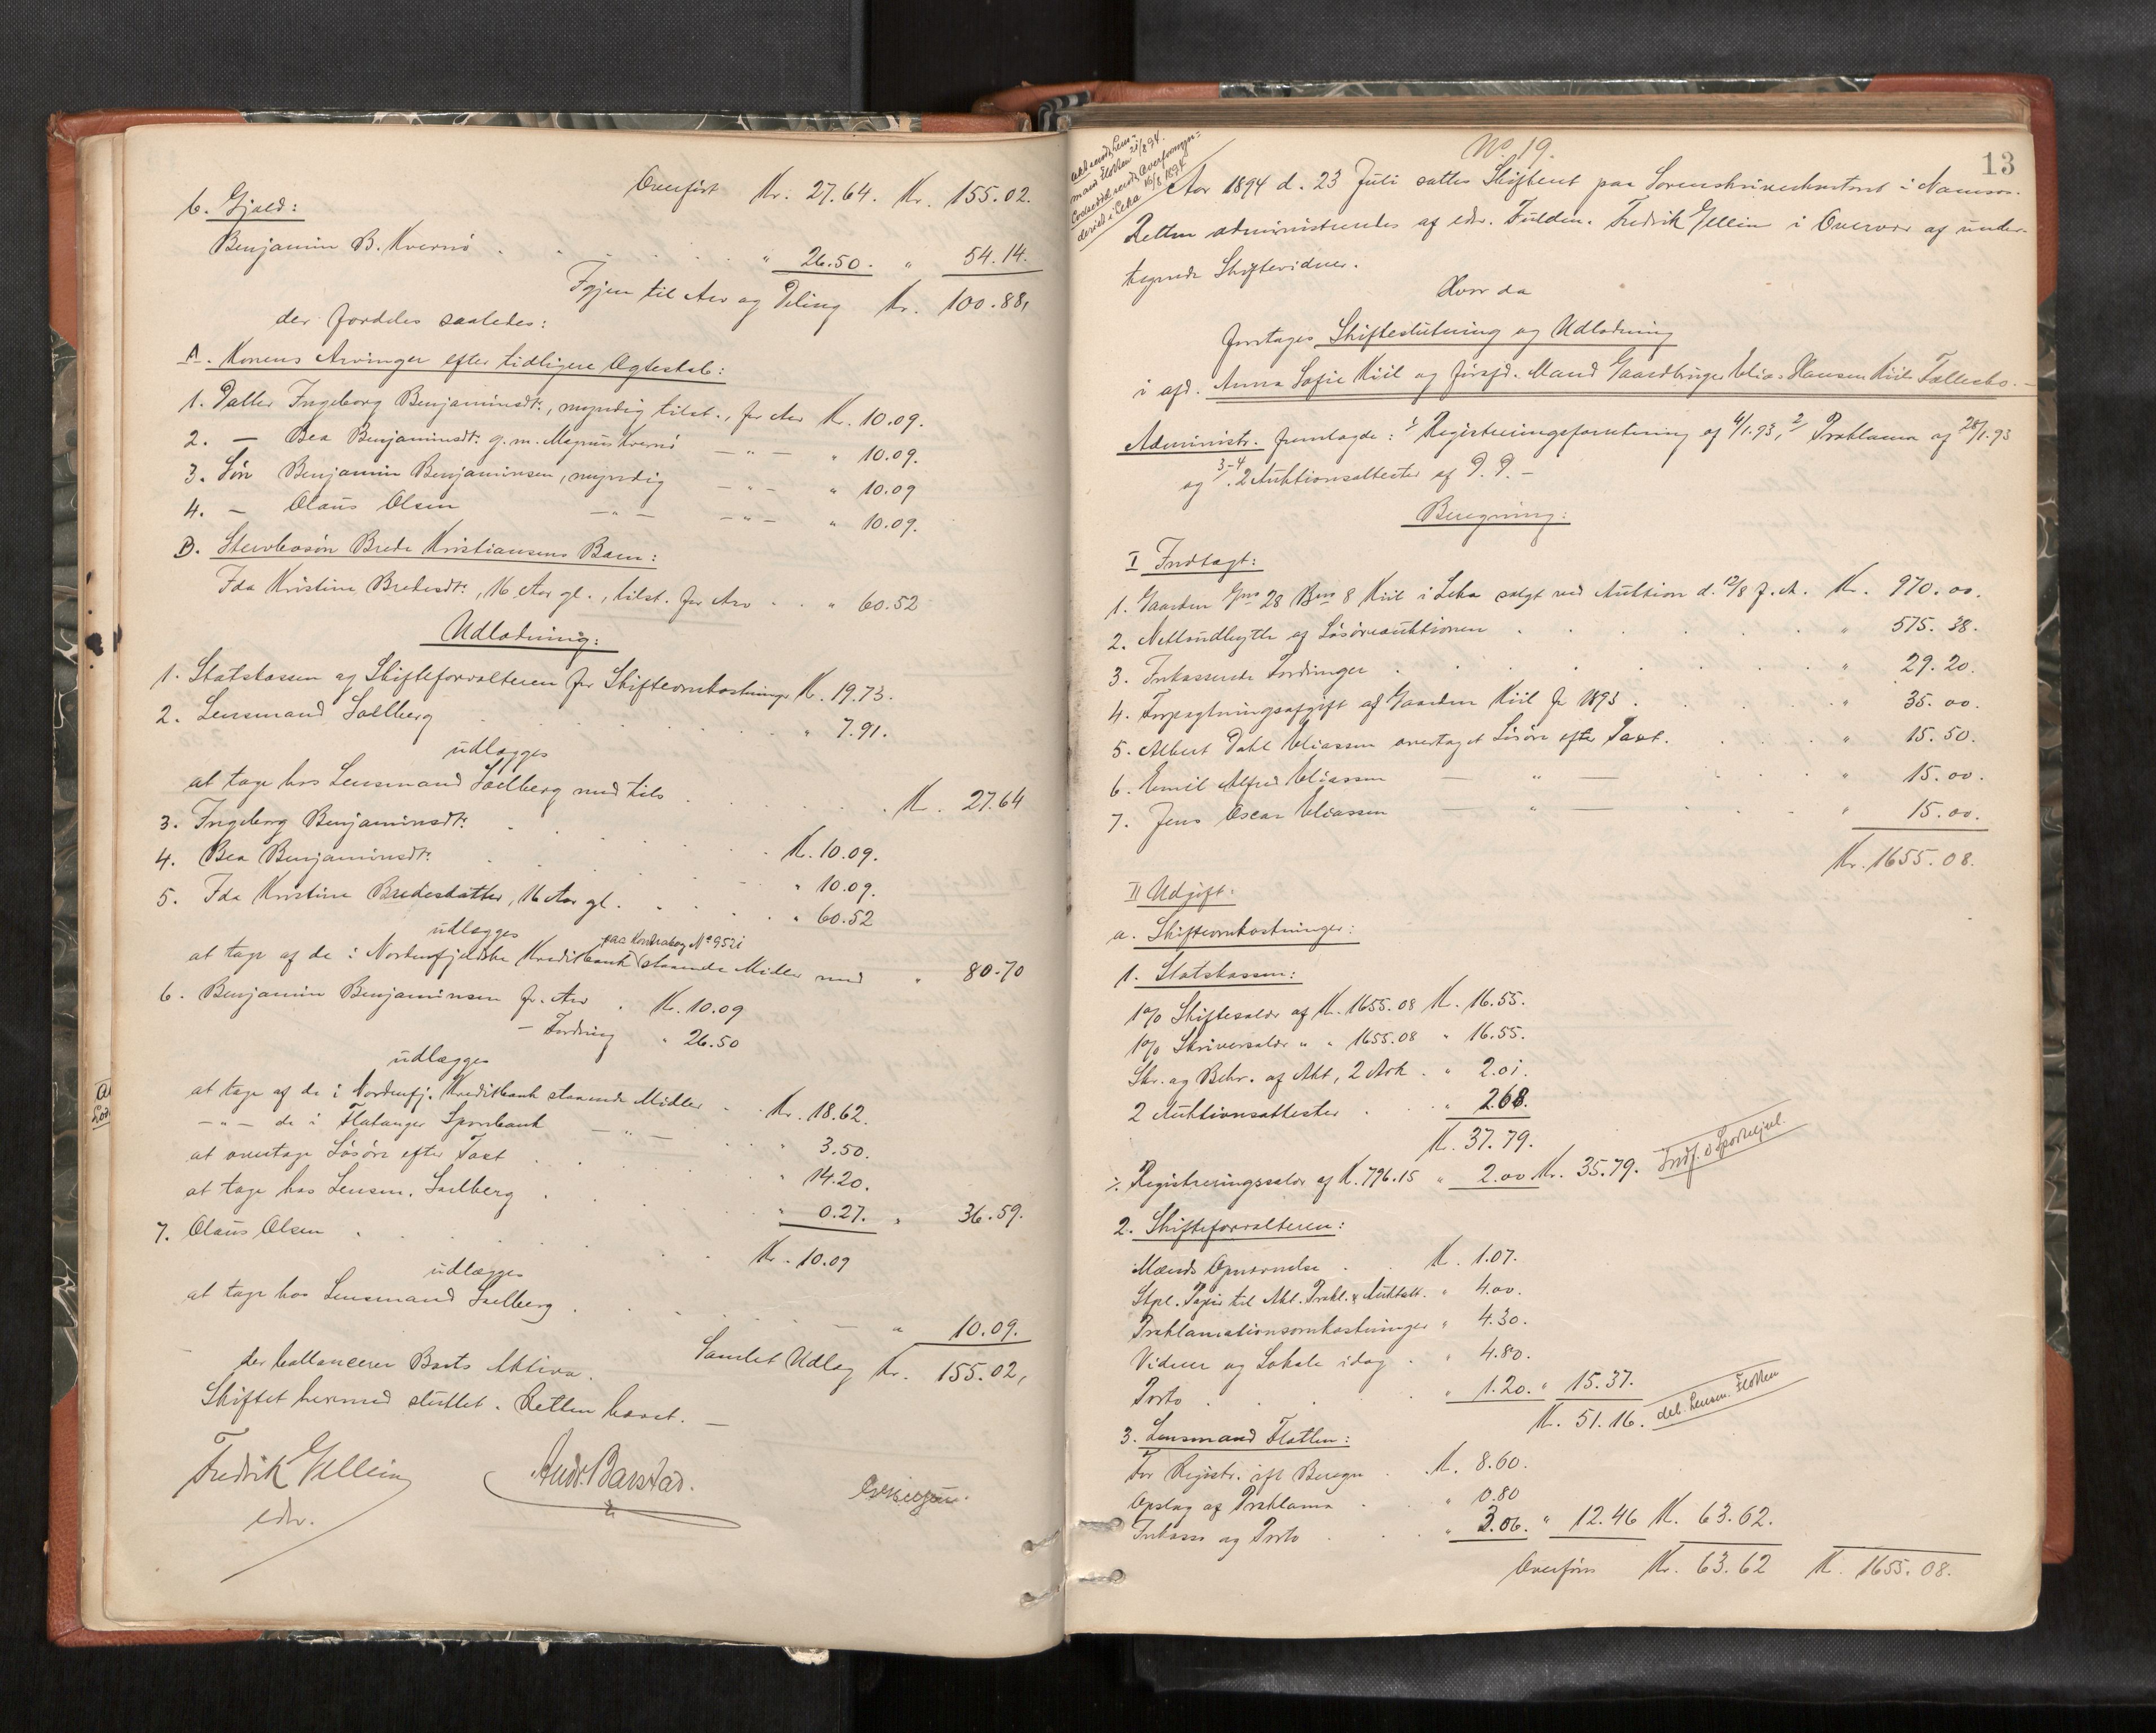 Overført Kr. 27.64. Kr. 155.02.
b. Gjæld:
Benjamin B. Kvernø . . . . " 26.50. " 54.14.
Igjen til Arv og Deling Kr. 100.88,
der fordeles saaledes:
A. Konens Arvinger efter tidligere Ægteskab:
1. Datter Ingeborg Benjaminsdtr., myndig tilst., for Arv Kr. 10.09.
2. — Bea Benjaminsdtr. g. m. Magnus Kvernø — " — " 10.09.
3. Søn Benjamin Benjaminsen, myndig — " — " 10.09
4. — Olaus Olsen — " — — " — " 10.09.
B. Stervbosøn Brede Kristiansens Barn:
Ida Kristine Bredesdtr., 16 Aar gl., tilst. for Arv . . " 60.52
Udlodning:
1. Statskassen og Skifteforvalteren for Skifteomkostninger Kr. 19.73.
2. Lensmand Sælberg . . . . " 7.91.
udlægges
at tage hos Lensmand Sælberg med tils. . . . . Kr. 27.64
3. Ingeborg Benjaminsdtr. . . . . Kr. 10.09.
4. Bea Benjaminsdtr. . . . . " 10.09.
5. Ida Kristine Bredesdatter, 16 Aar gl. . . . " 60.52
udlægges
paa Kontrabog No 952i
at tage af de i Nordenfjeldske Kreditbank staaende Midler med " 80.70
6. Benjamin Benjaminsen for Arv . Kr. 10.09
— Fordring " 26.50
udlægges
at tage af de i Nordenfj. Kreditbank staaende Midler . Kr. 18.62.
— " — de i Flatanger Sparebank — " — . . " 3.50.
at overtage Løsøre efter Taxt . . . " 14.20.
at tage hos Lensm. Sælberg . . . " 0.27. " 36.59.
7. Olaus Olsen . . . . Kr. 10.09
udlægges
at tage hos Lensmand Sælberg . . . . — " 10.09.
Samlet Udlæg Kr. 155.02,
der ballancerer Boets Aktiva.
Skiftet hermed sluttet. Retten hævet. —
Fredrik Gellein
edv.
Andr. Barstad.
13
No 19.
Aar 1894 d. 23 Juli sattes Skifteret paa Sorenskriverkontoret i Namsos.
Retten administreredes af edv. Fuldm. Fredrik Gellein i Overvær af under-
tegnede Skiftevidner.
Hvor da
foretages Skifteslutning og Udlodning
i afd. Anna Sofie Kiil og førafd. Mand Gaardbruger Elias Hansen Kiils Fællesbo. —
Administr. fremlagde: 1/ Registreringsforretning af 4/1.93, 2/ Proklama af 28/1.93
og 3-4/. 2 Auktionsattester af D. D. —
Beregning:
I Indtægt:
1. Gaarden Gno 28 Bno 8 Kiil i Leka solgt ved Auktion d. 12/8 f. A. Kr. 970.00.
2. Nettoudbytte af Løsøreauktionen . . . . " 575.38.
3. Inkasserede Fordringer . . . . " 29.20.
4. Forpagtningsafgift af Gaarden Kiil for 1893 . . . " 35.00.
5. Albert Dahl Eliassen overtaget Løsøre efter Taxt. . . " 15.50.
6. Emil Alfred Eliassen — " — . . " 15.00.
7. Jens Oscar Eliassen — " — . . " 15.00.
Kr. 1655.08.
II Udgift:
a. Skifteomkostninger:
1. Statskassen:
1% Skiftesalær af Kr. 1655.08 Kr. 16.55.
1% Skriversalær " " 1655.08 " 16.55.
Skr. og Behr. af Akt, 2 Ark . " 2.01.
2 Auktionsattester . . " 2.68.
Kr. 37.79.
÷ Registreringssalær af Kr. 796.15 " 2.00 Kr. 35.79. Indf. i Sporteljnl.
2. Skifteforvalteren:
Mænds Opnævnelse . . Kr. 1.07.
Stpl. Papir til Akt. Prokl. & Auktatt. " 4.00.
Proklamationsomkostninger " 4.30.
Vidner og Lokale idag . " 4.80.
Porto . . . . " 1.20. " 15.37.
Kr. 51.16. deb. Lensm. Flotten
3. Lensmand Flotten:
For Registr. ifl. Beregn. . Kr. 8.60.
Opslag af Proklama . . " 0.80
Inkasso og Porto . . " 3.06. " 12.46 Kr. 63.62.
Overføres Kr. 63.62 Kr. 1655.08.